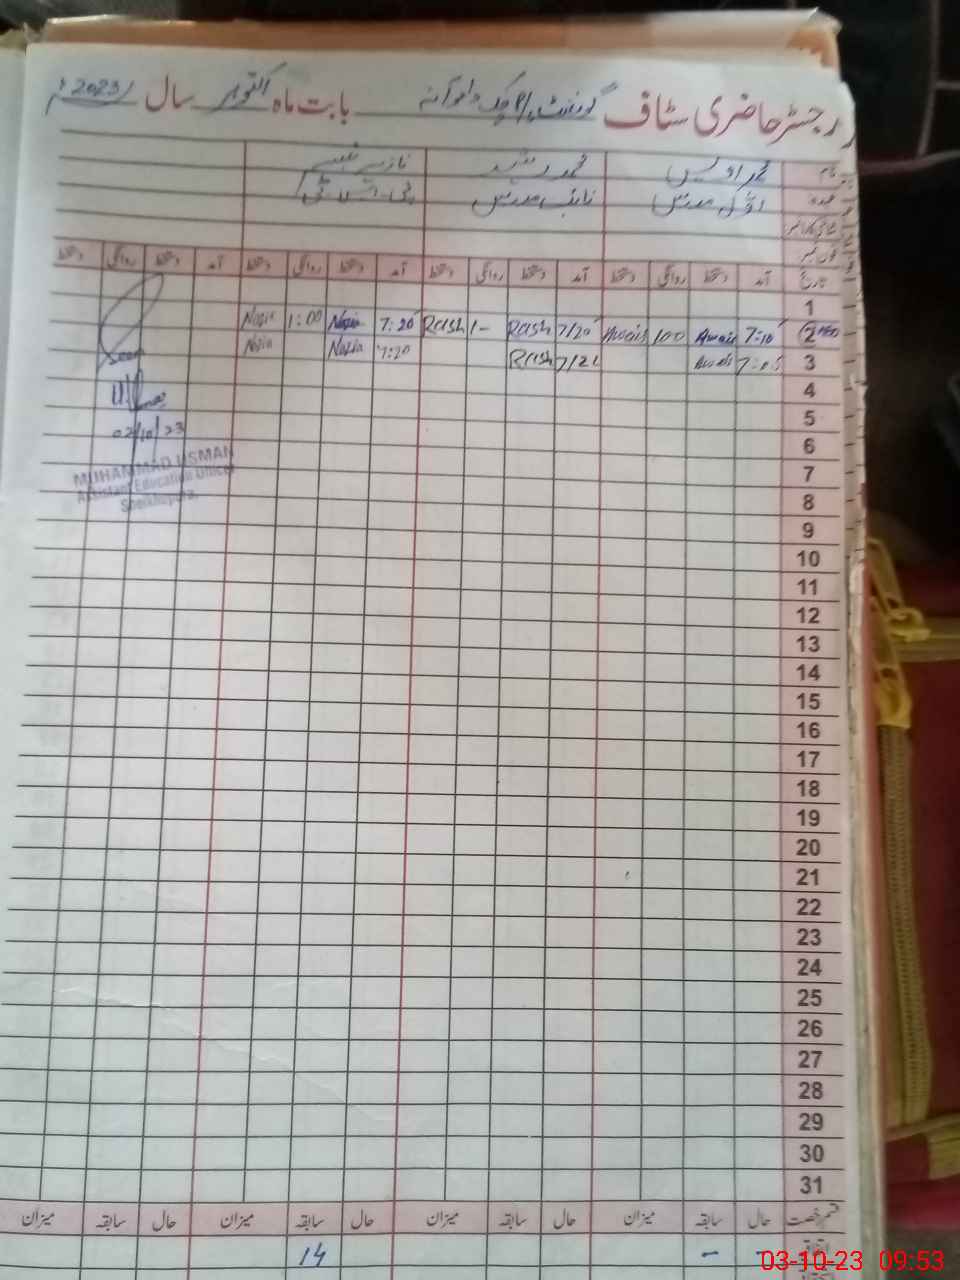 رجسٹر حاضری سٹاف گورنمنٹ پ/ا چک بابت ماہ اکتوبر سال 2023ء
نام محمد اویس محمد رشید نازیہ
عہدہ اول مدرس نائب مدرس پی ایس ٹی
شناختی کارڈ نمبر
فون نمبر
تاریخ آمد دستخط روانگی دستخط آمد دستخط روانگی دستخط آمد دستخط روانگی دستخط آمد دستخط روانگی دستخط
1
2 7:10 Awais 100 Awais 7/20 Rash 1- Rash 7:20 Nazia 1:00 Nazia
3 7:05 Awais Rash 7:20 Nazia Nazia
Seen
4
5
02/10/23
6
7
MUHAMMAD USMAN
Assistant Education Officer
Sheikhupura.
8
9
10
11
12
13
14
15
16
17
18
19
20
21
22
23
24
25
26
27
28
29
30
31
قسم رخصت حال سابقہ میزان حال سابقہ میزان حال سابقہ میزان حال سابقہ میزان
اتفاقیہ - - 14
03-10-23 09:53